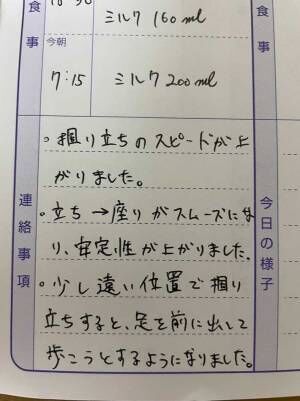 食事
ミルク 160ml
今朝
7:15 ミルク 200ml
連絡事項
。掴り立ちのスピードが上
がりました。
。立ち→座りがスムーズにな
り、安定性が上がりました。
。少し遠い位置で掴り
立ちすると、足を前に出して
歩こうとするようになりました。
食事
今日の様子